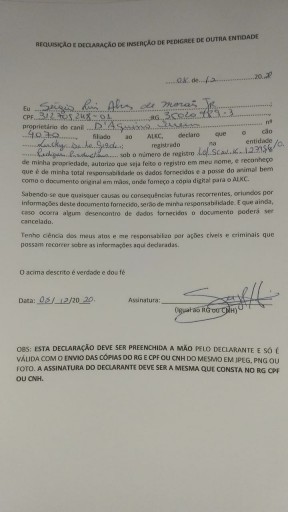 REQUISIÇÃO E DECLARAÇÃO DE INSERÇÃO DE PEDIGREE DE OUTRA ENTIDADE
05 de 12 20
Eu Sérgio Alves de Morais Jr
CPF RG
proprietário do canil D'Aquino nº
4070 filiado ao ALKC, declaro que o cão
Lucky registrado na entidade
sob o número de registro
de minha propriedade, autorizo que seja feito o registro em meu nome, e reconheço
que é de minha total responsabilidade os dados fornecidos e a posse do animal bem
como o documento original em mãos, onde forneço a cópia digital para o ALKC.
Sabendo-se que quaisquer causas ou consequências futuras recorrentes, oriundos por
informações deste documento fornecido, serão de minha responsabilidade. E que ainda,
caso ocorra algum desencontro de dados fornecidos o documento poderá ser
cancelado.
Tenho ciência dos meus atos e me responsabilizo por ações civeis e criminais que
possam recorrer sobre as informações aqui declaradas.
O acima descrito é verdade e dou fé
Data: 05/12/2020. Assinatura:
(igual ao RG ou CNH)
OBS: ESTA DECLARAÇÃO DEVE SER PREENCHIDA A MÃO PELO DECLARANTE E SÓ É
VÁLIDA COM O ENVIO DAS CÓPIAS DO RG E CPF OU CNH DO MESMO EM JPEG, PNG OU
FOTO. A ASSINATURA DO DECLARANTE DEVE SER A MESMA QUE CONSTA NO RG CPF
OU CNH.